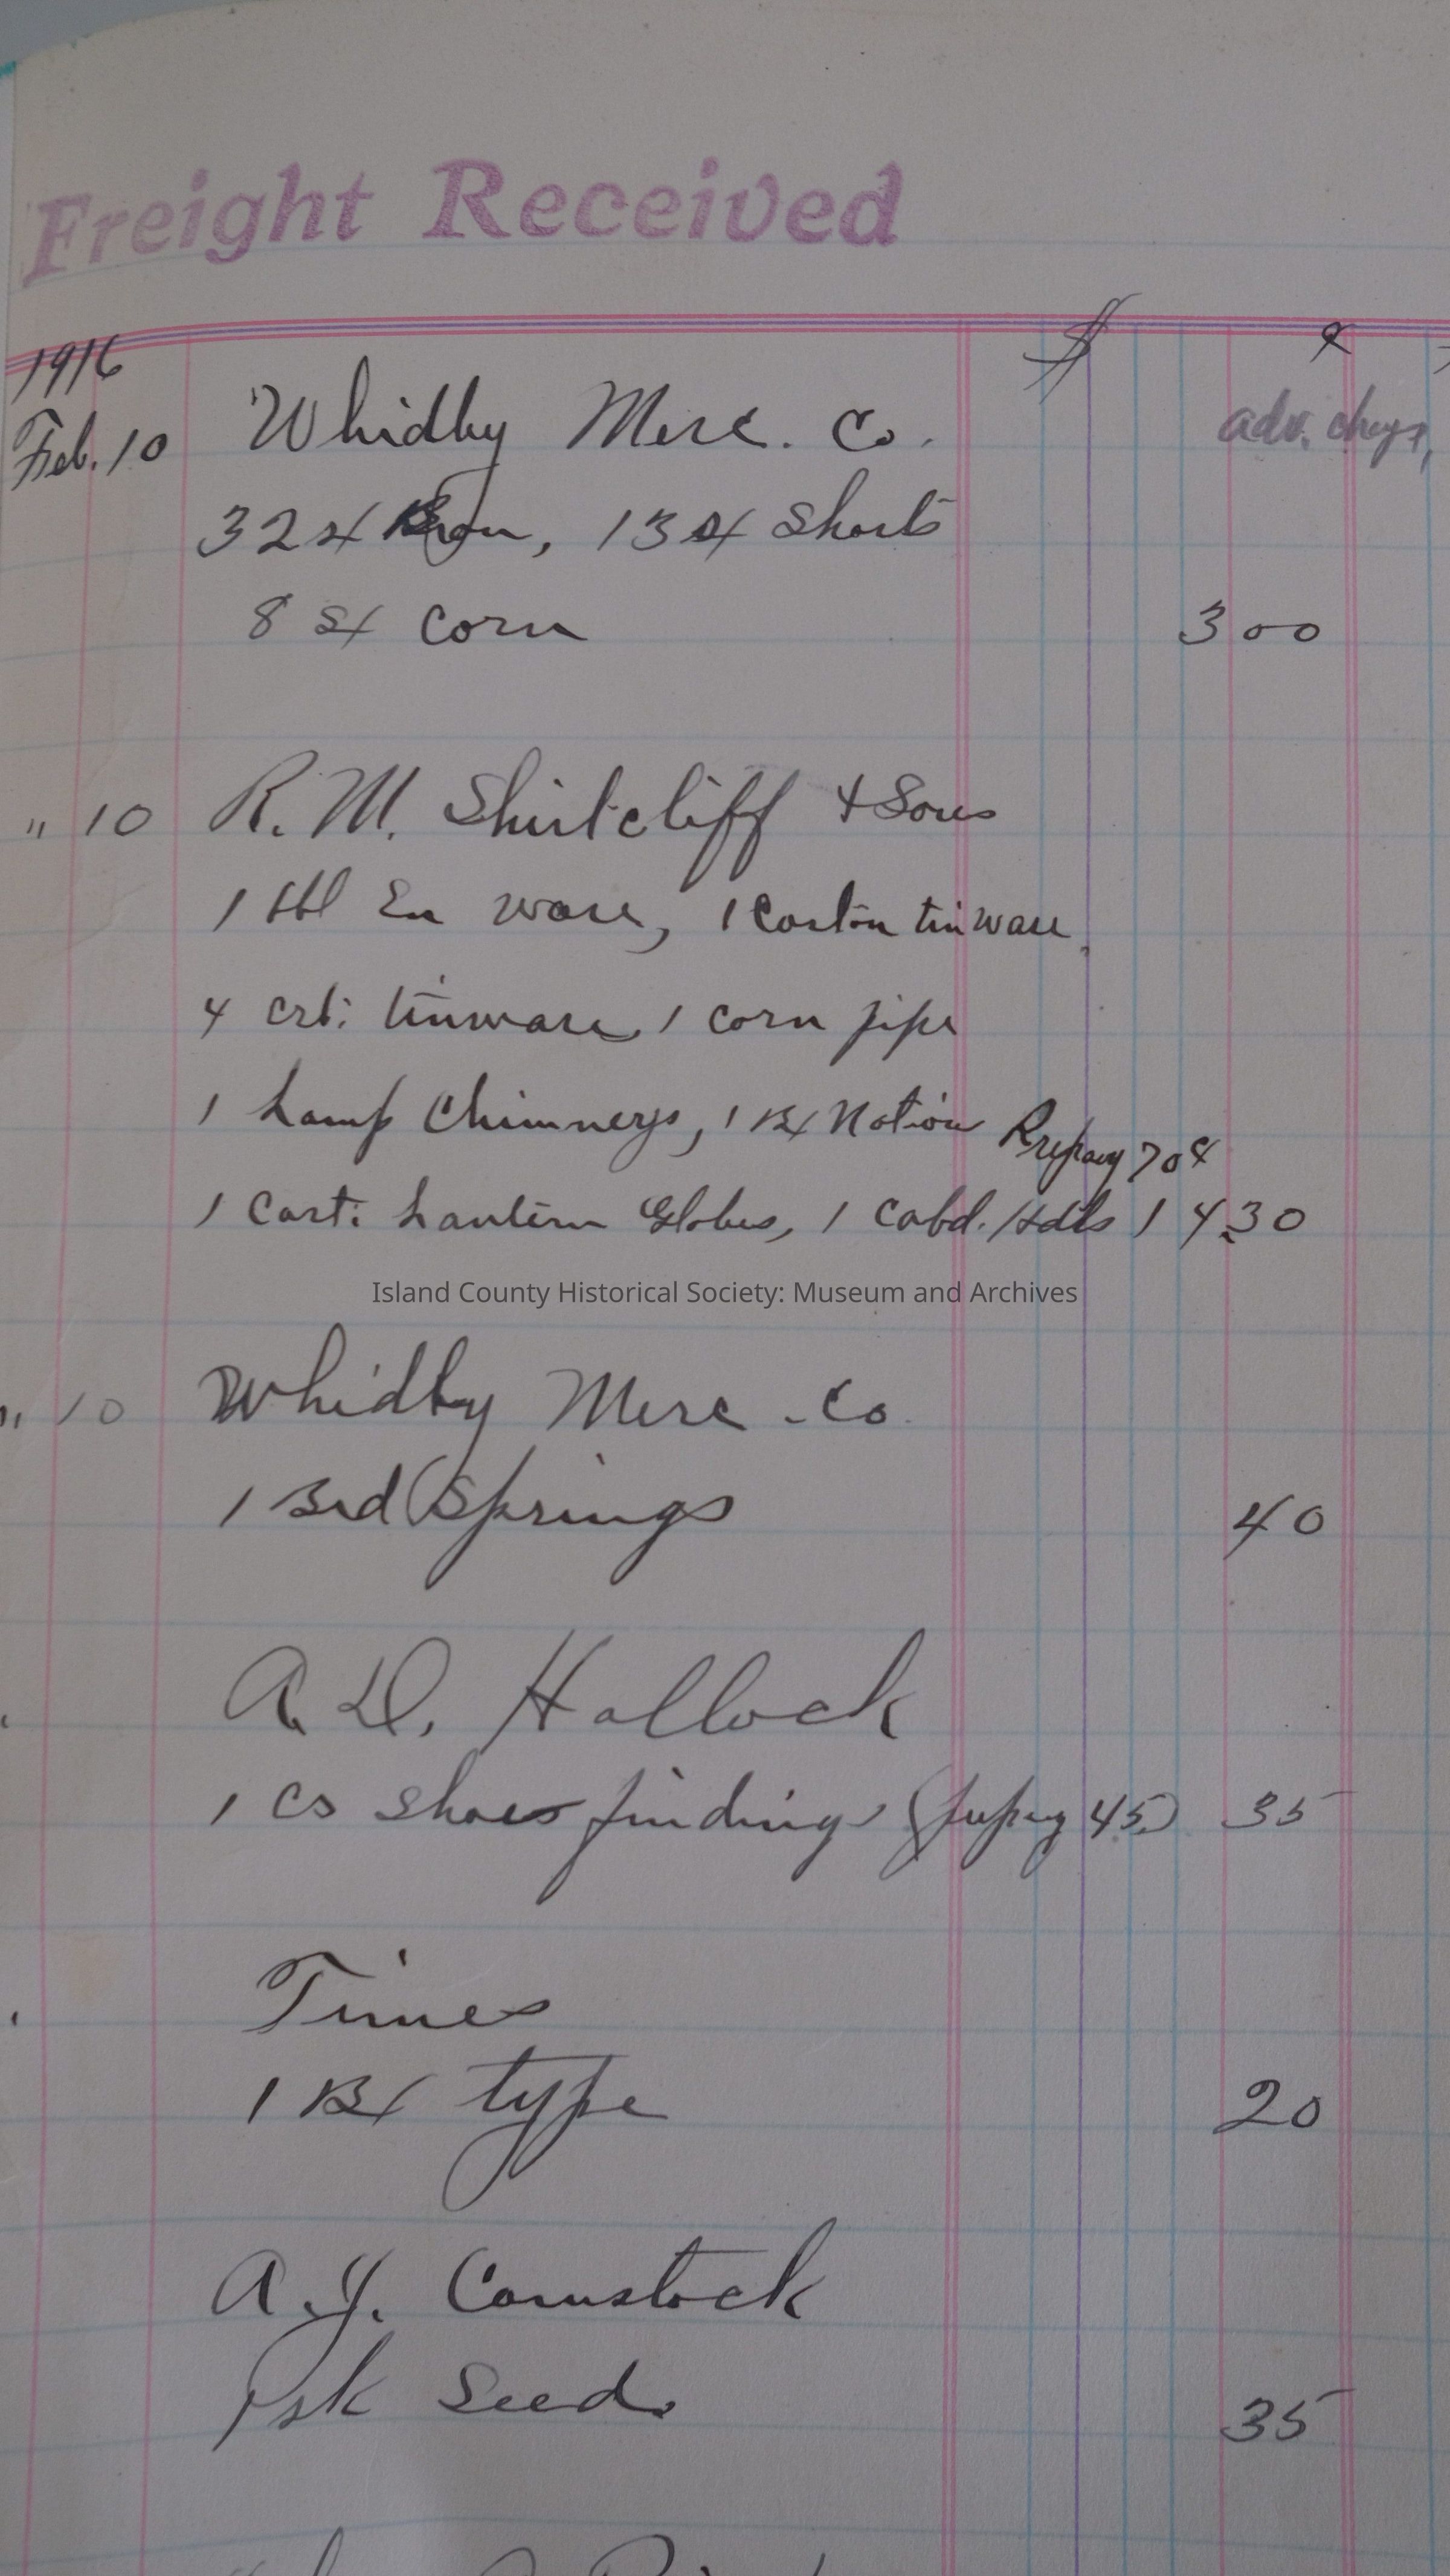 Freight Received
$ ¢
1916
Feb. 10 Whidby Merc. Co. adv. chgs,
32 sx Bran, 13 sx Shorts
8 sx Corn 3 00
" 10 R. M. Shirtcliff & Sons
1 bbl En ware, 1 Carton tinware,
4 crt. tinware, 1 corn pipe
1 Lamp Chimneys, 1 Bx Notion Prepay 70¢
1 Cart. Lantern Globes, 1 Cabd. Hdls 1 4 30
Island County Historical Society: Museum and Archives
" 10 Whidby Merc. Co.
1 Bed Springs 40
A. D. Hallock
1 Cs Shoes findings (prepay 45) 35
Times
1 Bx type 20
A. J. Comstock
1 sk Seed. 35